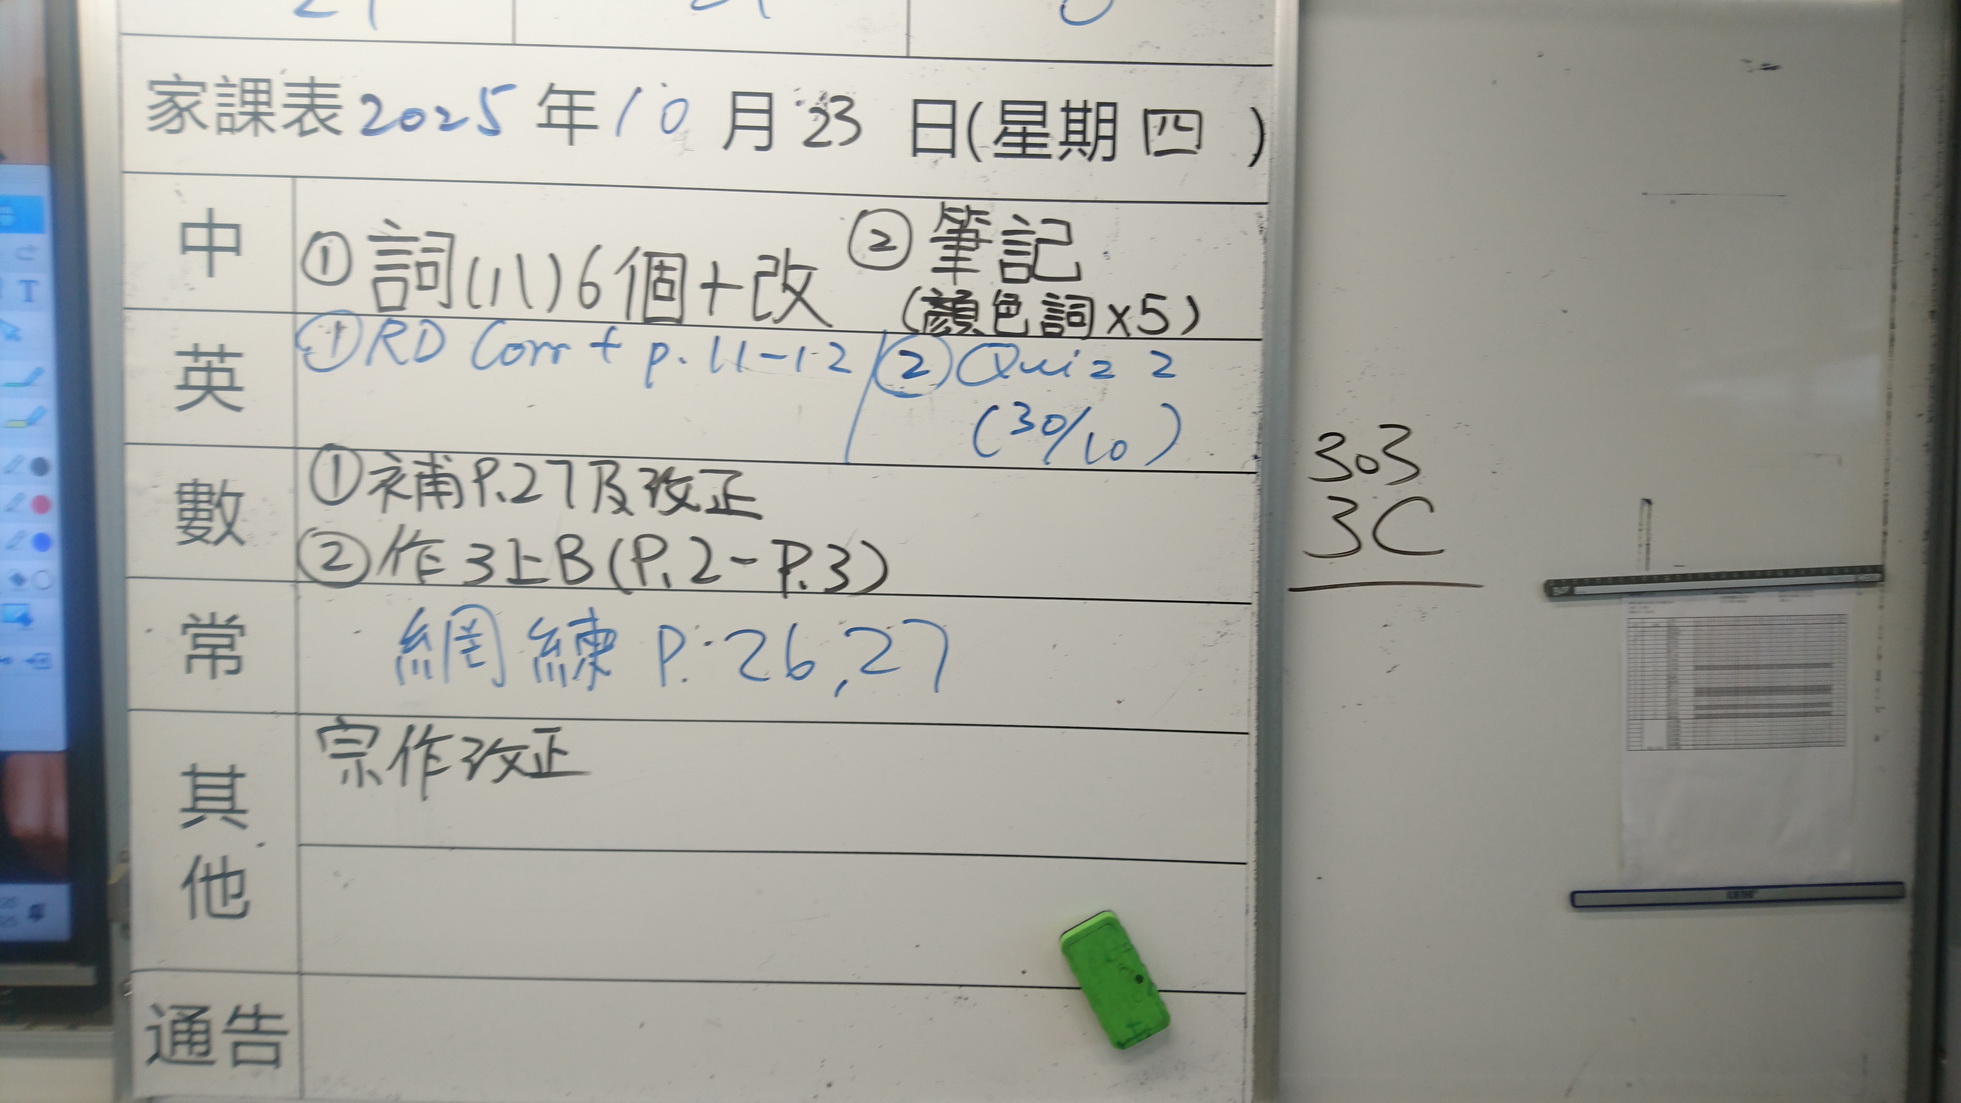 家課表2025年10月23日(星期四)
中
①詞(八)6個+改 ②筆記
(顏色詞x5)
英
①RD Corr + p.11-12 / ②Quiz 2
(30/10)
數
①補P.27及改正
②作3上B(P.2-P.3)
常
網練 P.26,27
其他
宗作改正
通告
303
3C